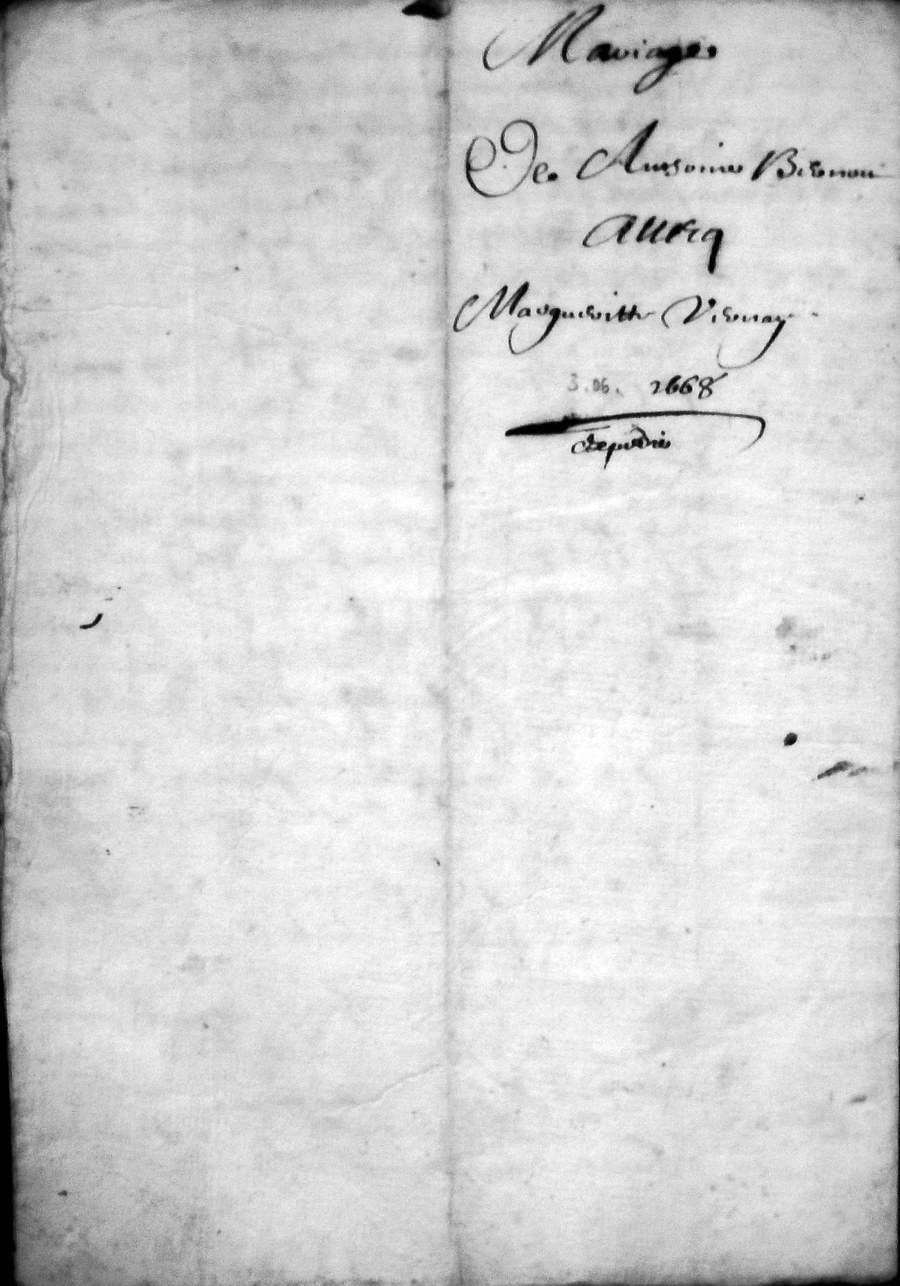 Mariage
De Anthoine Bienvenu
Avecq
Margueritte Viernay
3.06. 1668
Expedié